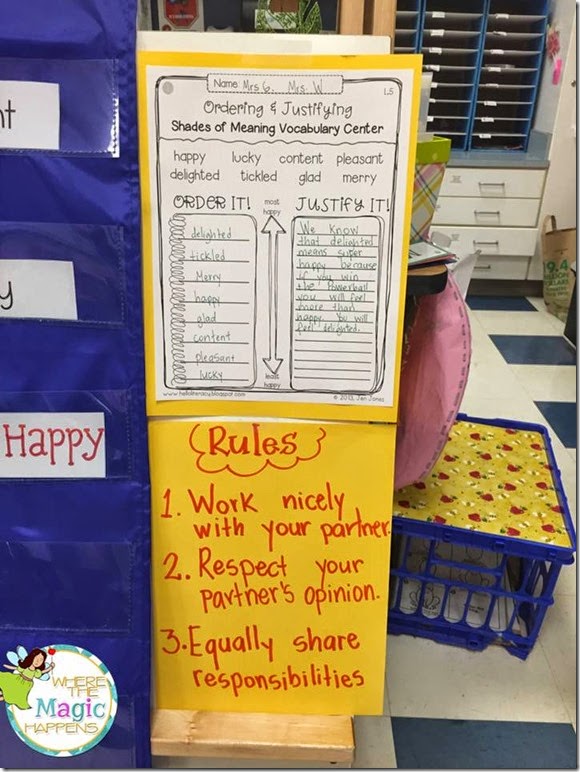 nt
y
Happy
Name Mrs G. Mrs. W
L.5
Ordering & Justifying
Shades of Meaning Vocabulary Center
happy lucky content pleasant
delighted tickled glad merry
ORDER IT!
delighted
tickled
Merry
happy
glad
content
pleasant
lucky
most
happy
least
happy
JUSTIFY IT!
We Know
that delighted
means super
happy because
if you win
the Powerball
you will feel
more than
happy. You will
feel delighted.
www.hello literacy.blogspot.com
© 2013, Jen Jones
Rules
1. Work nicely
with your partner.
2. Respect your
partner's opinion.
3. Equally share
responsibilities
WHERE
THE
Magic
HAPPENS